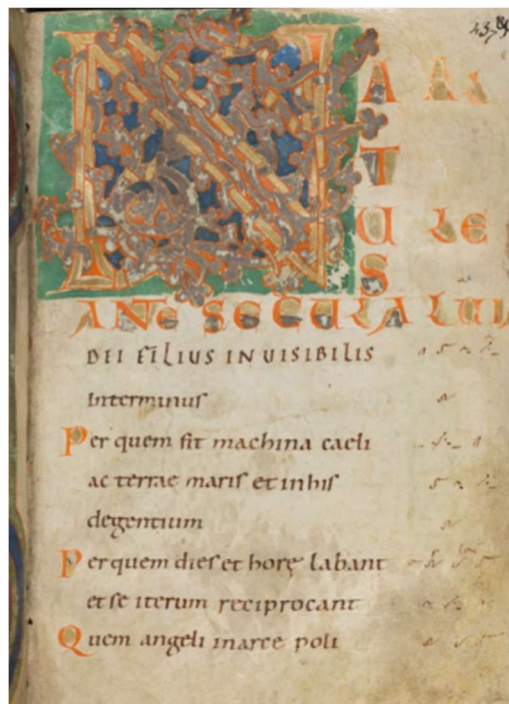 N A
T
U
S
ANTE SECULA
DEI FILIUS INUISIBILIS
Interminus
Per quem fit machina caeli
ac terrae maris et inhis
degentium
Per quem dies et horę labant
et se iterum reciprocant
Quem angeli inarce poli